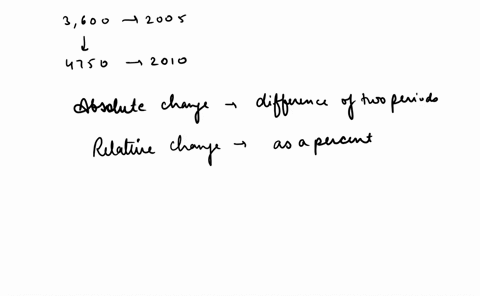 3,600 → 2005
↓
4750 → 2010
Absolute change → difference of two periods
Relative change → as a percent